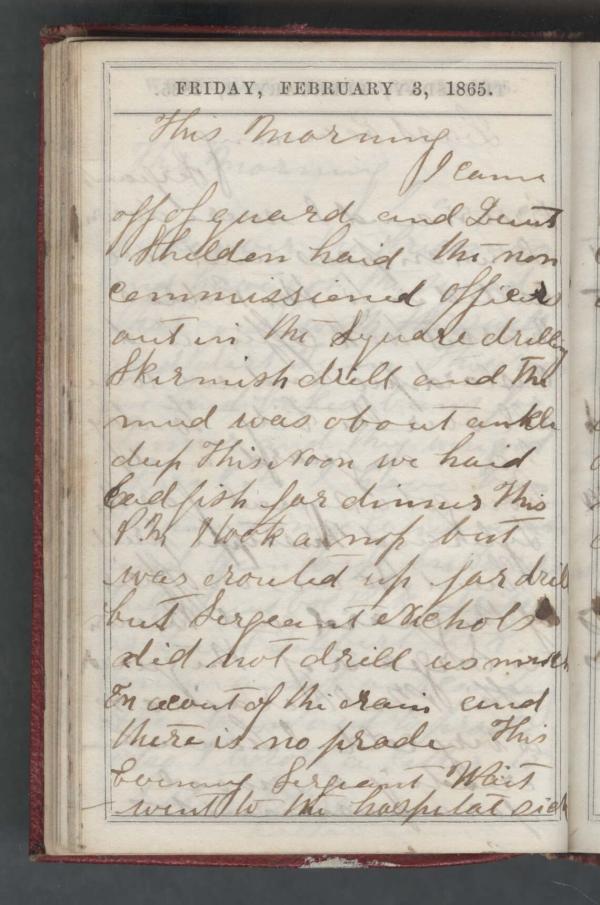 FRIDAY, FEBRUARY 3, 1865.
This Morning
I came
off of guard and Leut
Shelden haid the non
commissioned officers
out in the Square drilling
Skirmish drill and the
mud was about ankle
deep This Noon we haid
codfish for dinner This
P.M. I took a nap but
was routed up for drill
but Sergeant Nichols
did not drill us much
on acount of the rain and
there is no prade This
Evening Sergeant Wait
went to the hospital sick